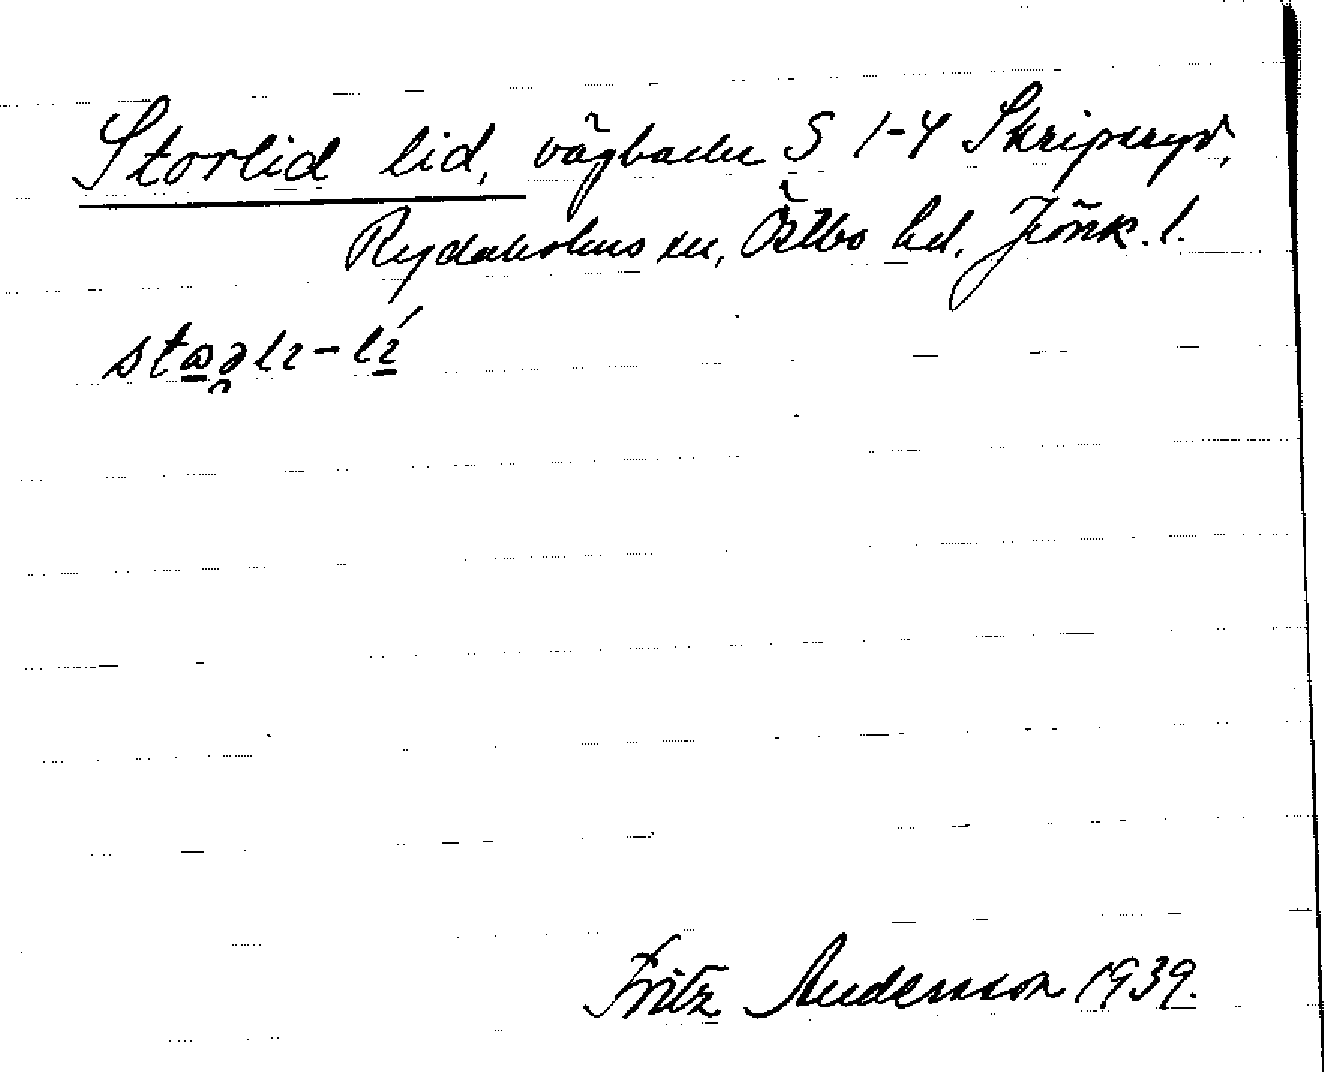 Storlid lid, vägbacke S 1-4 Skripsryd,
Rydaholms sn, Östbo hd, Jönk. l.
Fritz Andersson 1939.